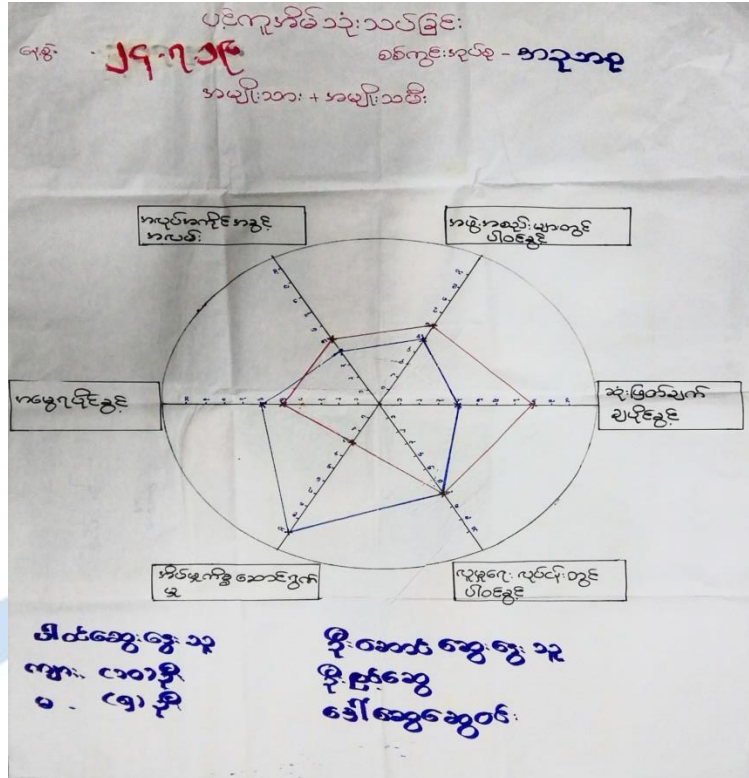 ပင့်ကူအိမ်သုံးသပ်ခြင်း
နေ့စွဲ - ၂၄-၇-၁၉
စစ်ကွင်းအုပ်စု -
အမျိုးသား + အမျိုးသမီး
အလုပ်အကိုင်အခွင့်
အလမ်း
အဖွဲ့အစည်းများတွင်
ပါဝင်ခွင့်
အမွေရပိုင်ခွင့်
ဆုံးဖြတ်ချက်
ချပိုင်ခွင့်
အိမ်မှုကိစ္စဆောင်ရွက်
မှု
လူမှုရေးလုပ်ငန်းတွင်
ပါဝင်ခွင့်
ပါဝင်ဆွေးနွေးသူ
ကျား - (၁၀) ဦး
မ - (၅) ဦး
ဦးဆောင်ဆွေးနွေးသူ
ဒေါ်ဆွေဆွေဝင်း